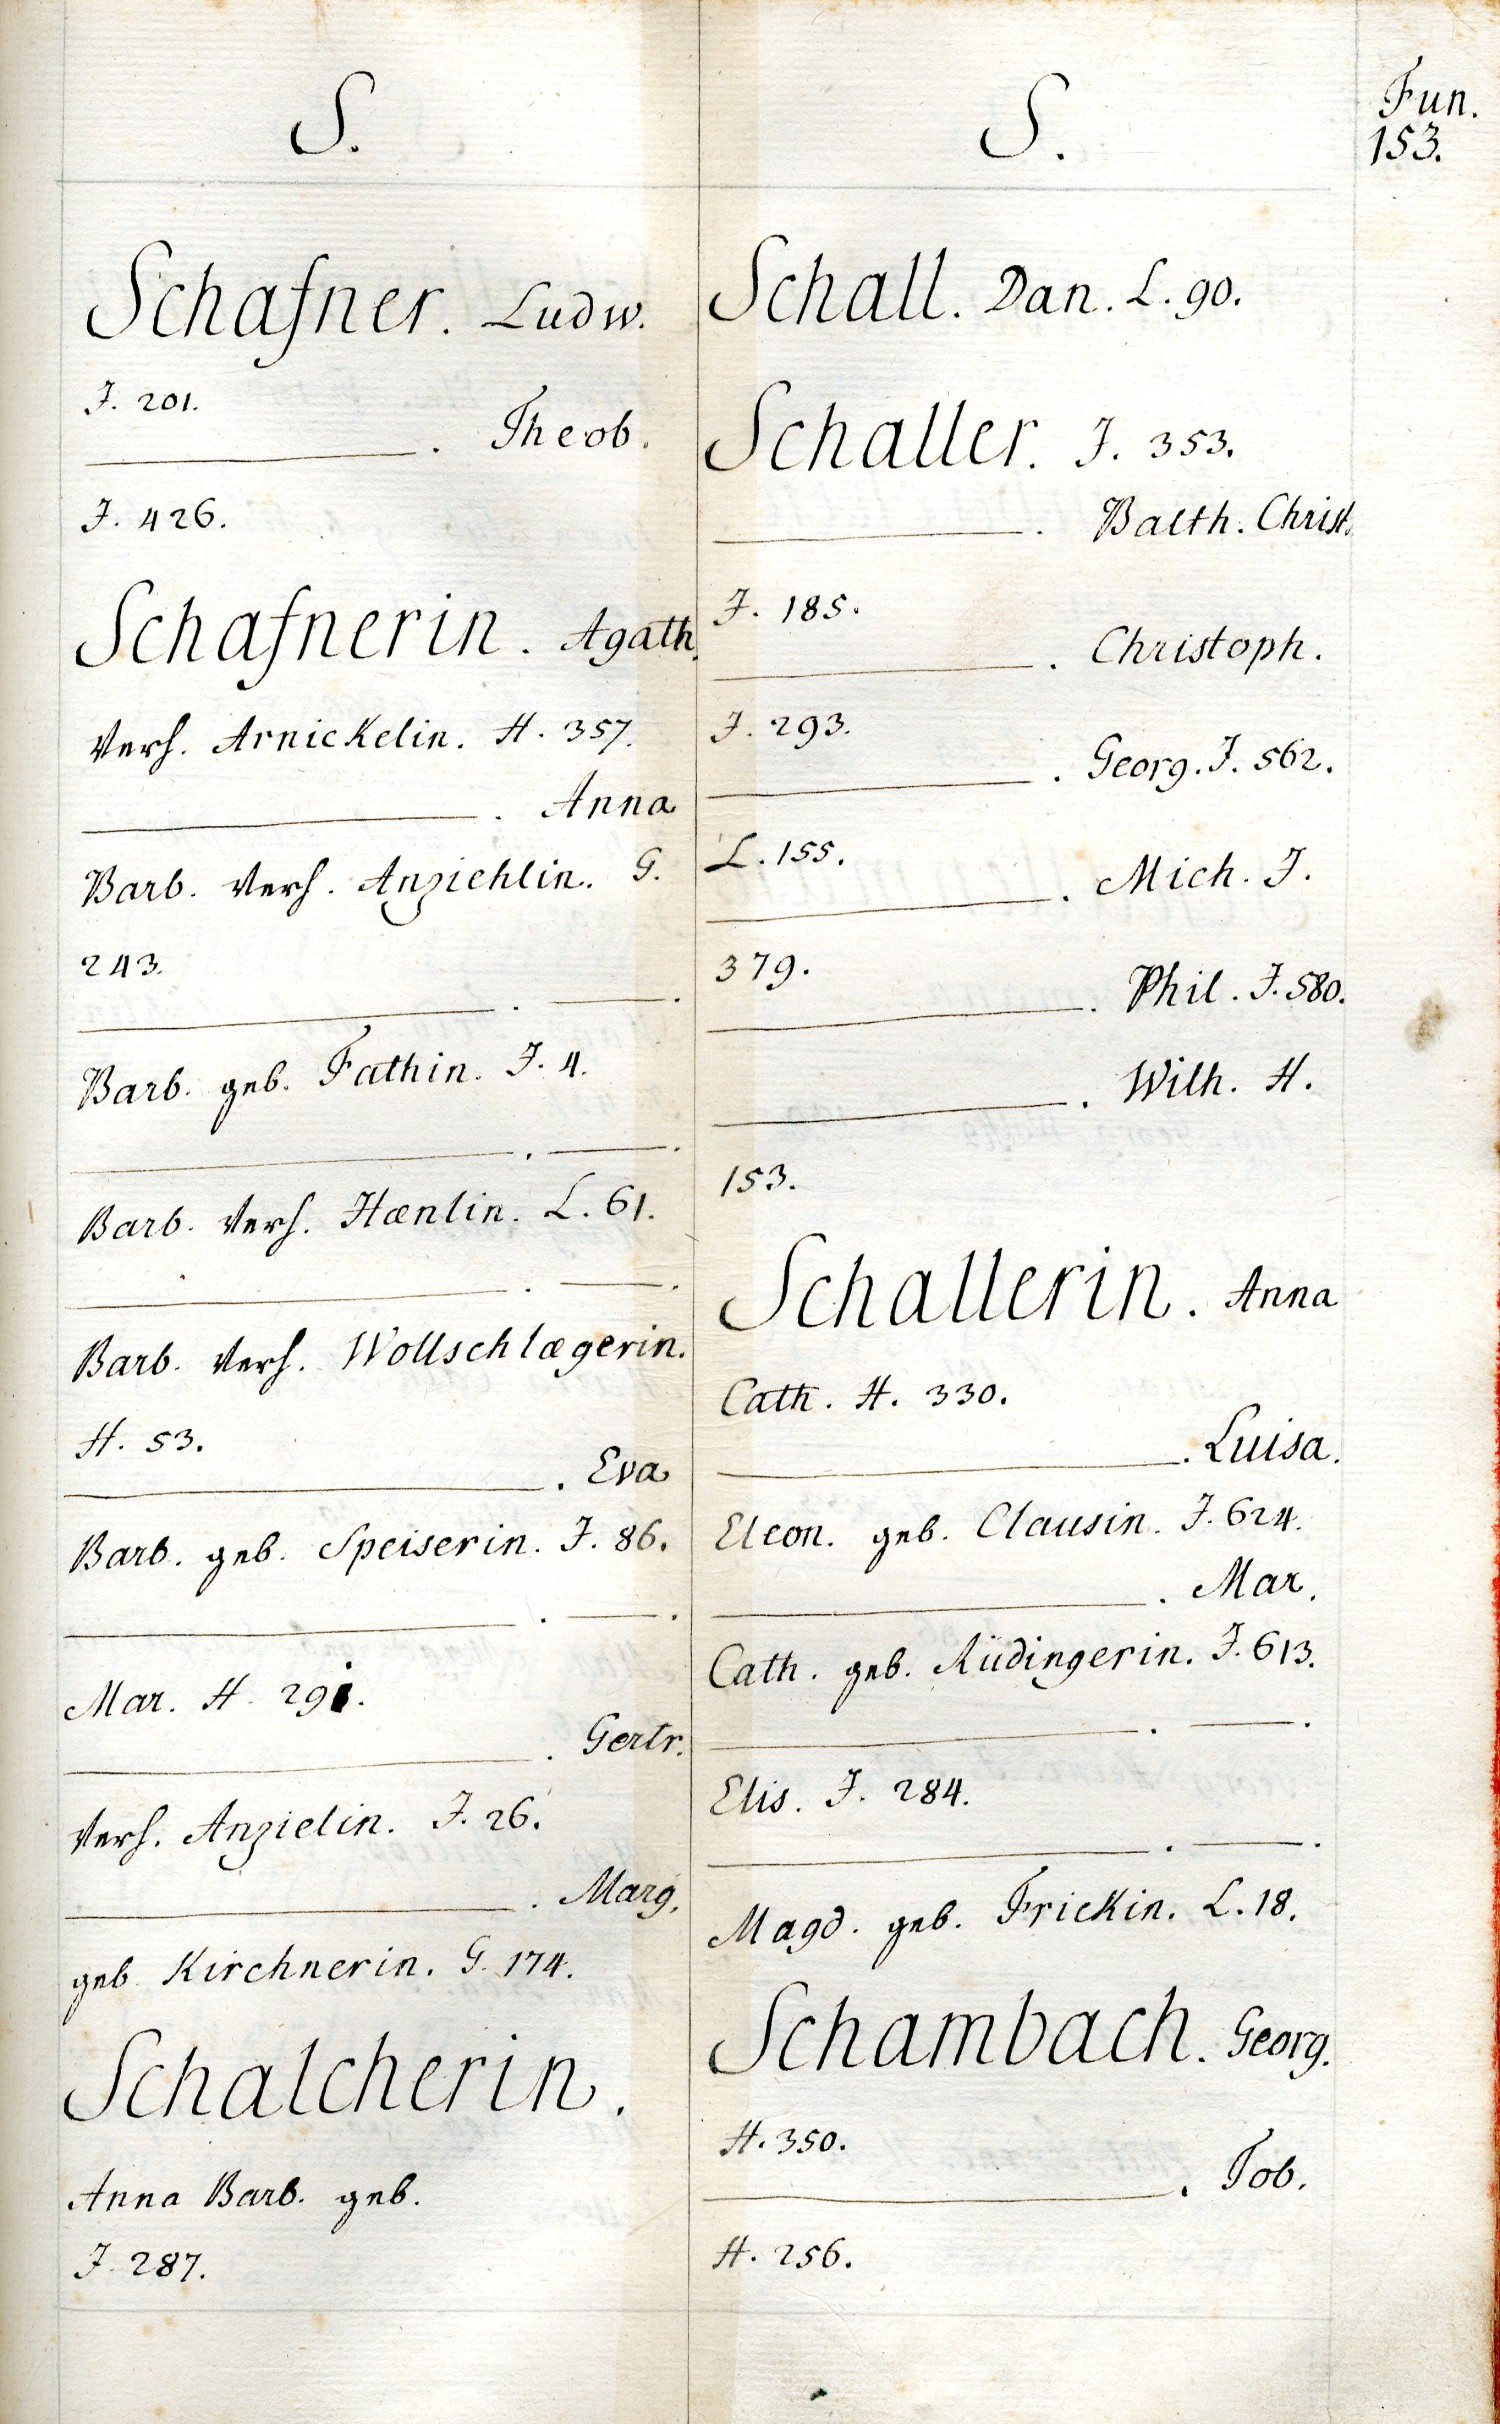 S.
Schafner. Ludw.
J. 201.
———. Theob.
J. 426.
Schafnerin. Agath.
verh. Arnickelin. H. 357.
———. Anna
Barb. verh. Anziehlin. G.
243.
———. ———.
Barb. geb. Fathin. J. 4.
———. ———.
Barb. verh. Hænlin. L. 61.
———. ———.
Barb. verh. Wollschlægerin.
H. 53.
———. Eva
Barb. geb. Speiserin. J. 86.
———. ———.
Mar. H. 291.
———. Gertr.
verh. Anzielin. J. 26.
———. Marg.
geb. Kirchnerin. G. 174.
Schalcherin.
Anna Barb. geb.
J. 287.
S.
Schall. Dan. L. 90.
Schaller. J. 353.
———. Balth. Christ.
J. 185.
———. Christoph.
J. 293.
———. Georg. J. 562.
L. 155.
———. Mich. J.
379.
———. Phil. J. 580.
———. Wilh. H.
153.
Schallerin. Anna
Cath. H. 330.
———. Luisa.
Eleon. geb. Clausin. J. 624.
———. Mar.
Cath. geb. Rüdingerin. J. 613.
———. ———.
Elis. J. 284.
———. ———.
Magd. geb. Frickin. L. 18.
Schambach. Georg.
H. 350.
———. Tob.
H. 256.
Fun.
153.